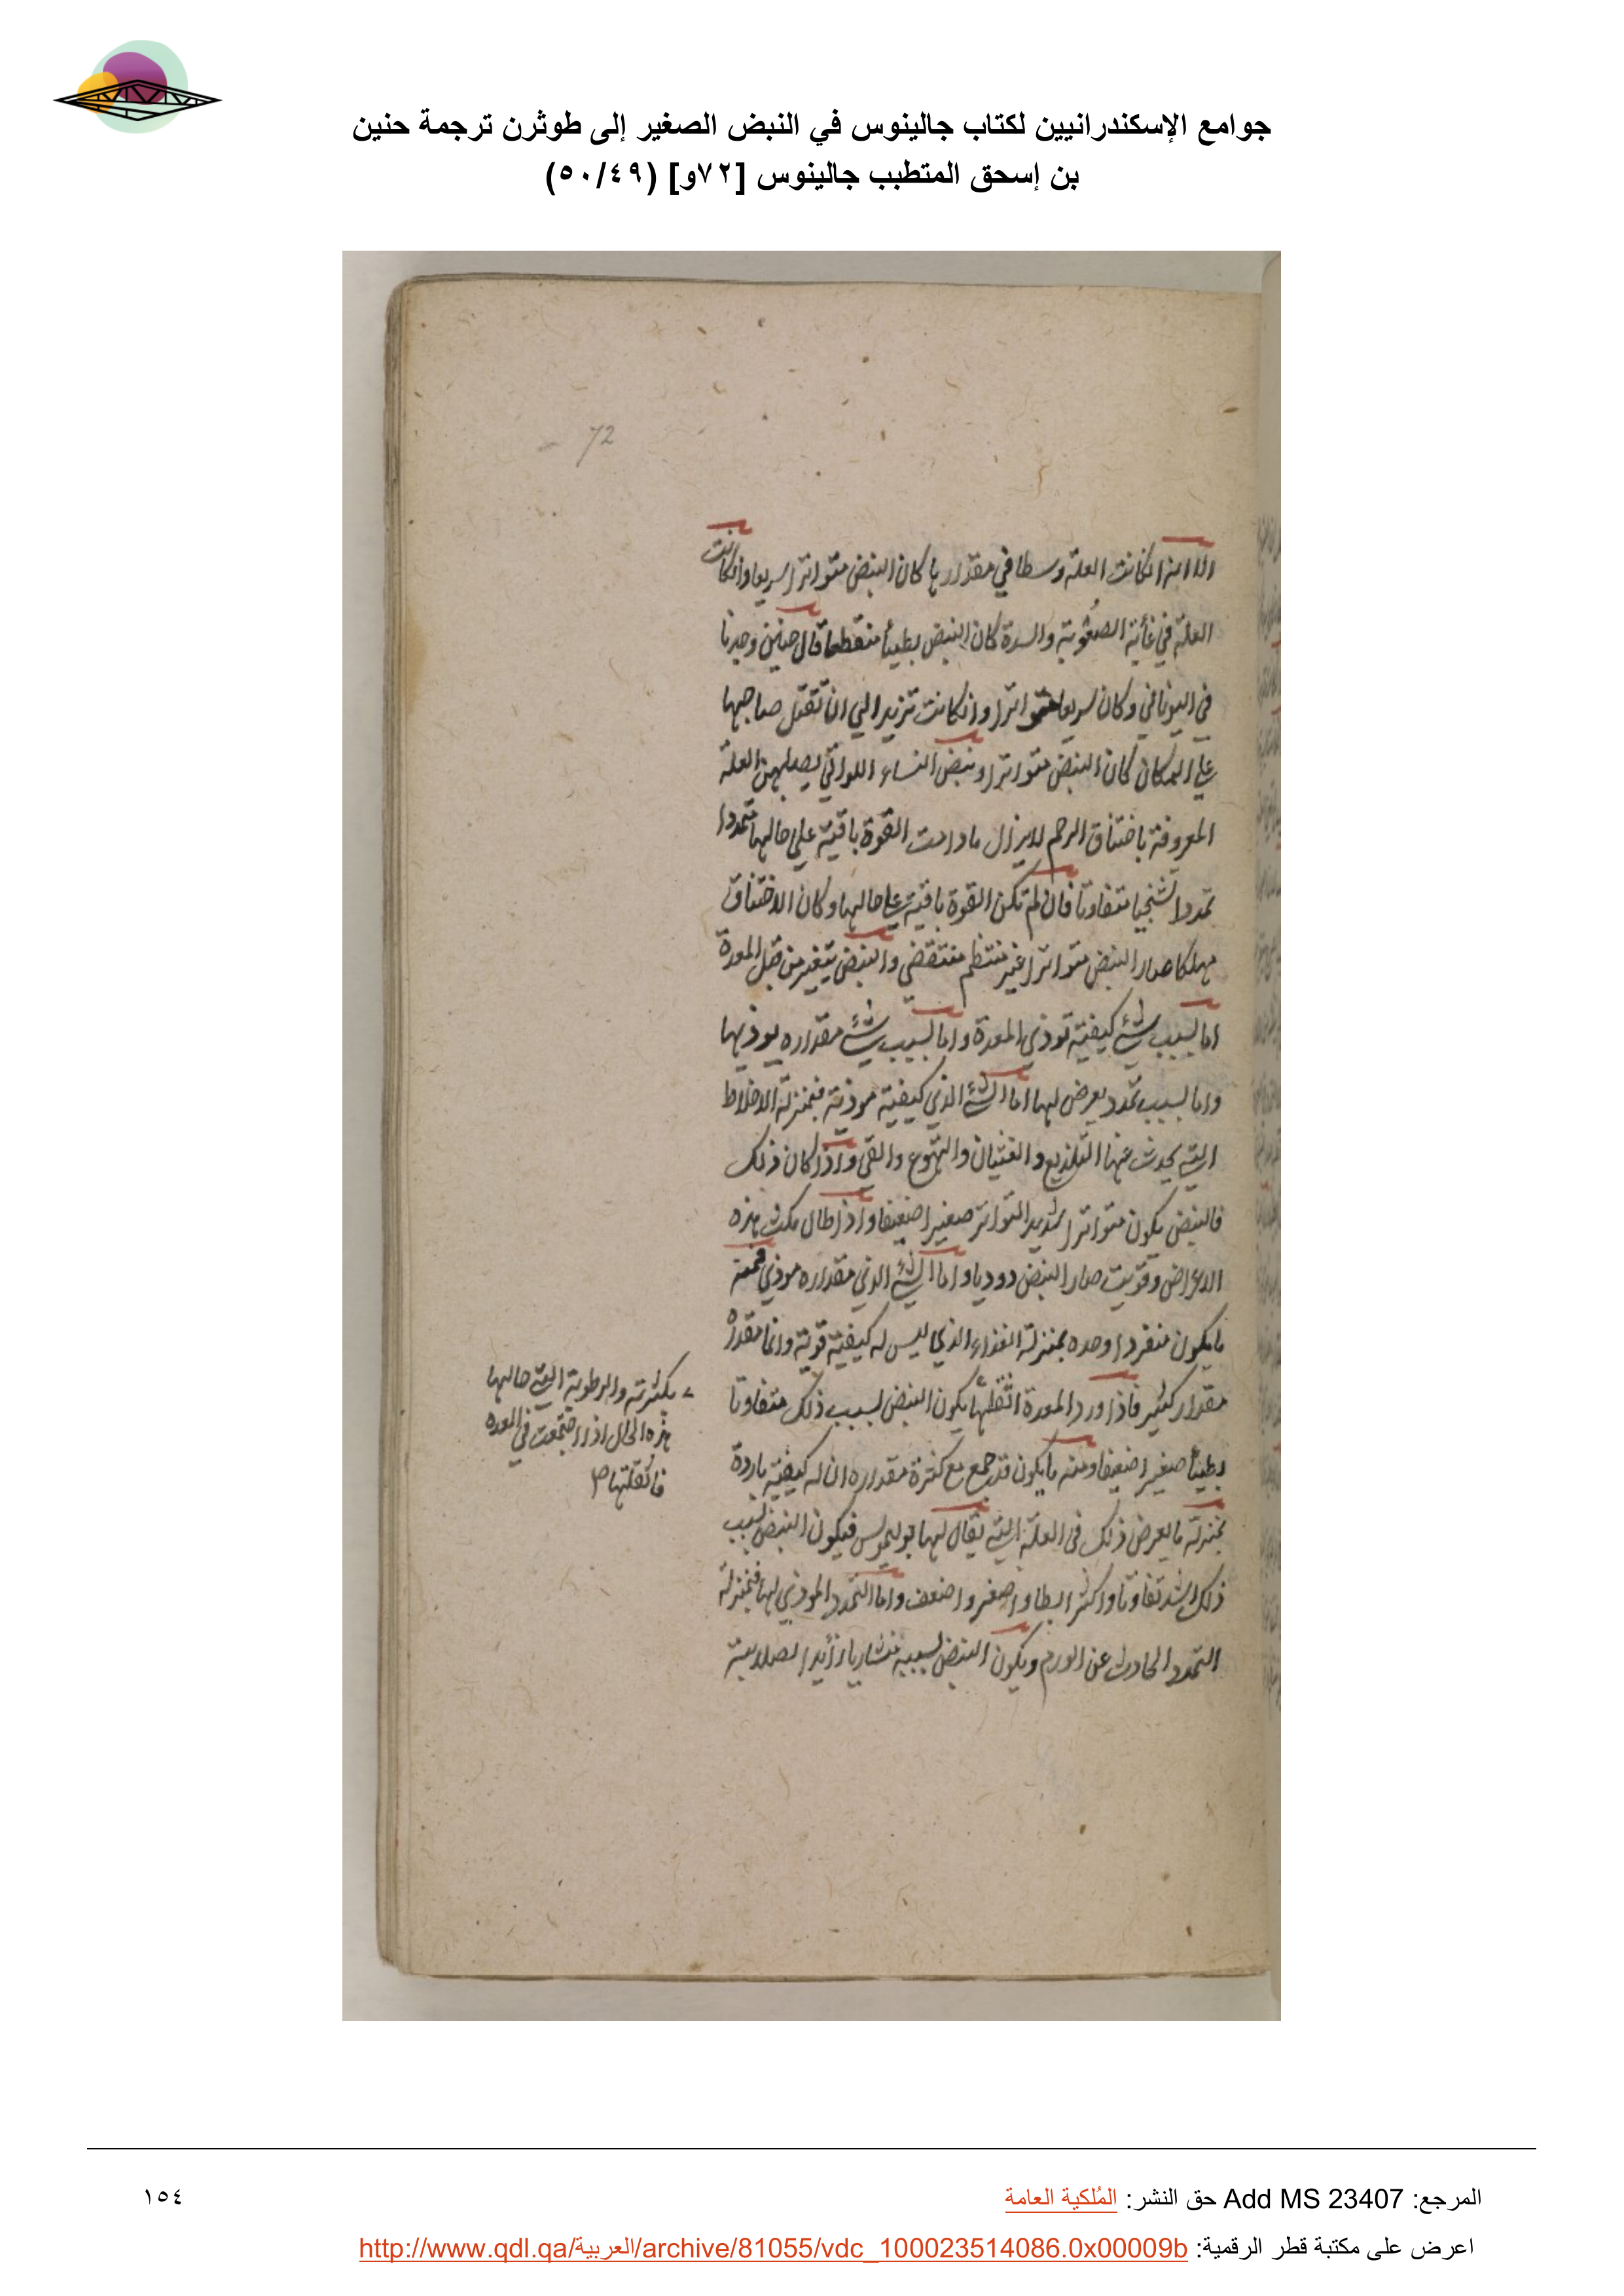 جوامع الإسكندرانيين لكتاب جالينوس في النبض الصغير إلى طوثرن ترجمة حنين
بن إسحق المتطبب جالينوس [٧٢و] (٥٠/٤٩)
72
الا انه ان كانت العلة وسطا في مقدارها كان النبض متواترا سريعا وان كانت
العلة في غاية الصعوبة والسدة كان النبض بطيئا منقطعا قال حنين وجدنا
في اليوناني وكان سريعا متواترا وان كانت تزيد الي ان تقتل صاحبها
علي المكان كان النبض متواترا ونبض النساء اللواتي يصيبهن العلة
المعروفة باختناق الرحم لا يزال مادامت القوة باقية علي حالها متمددا
تمددا تشنجيا متفاوتا فان لم تكن القوة باقية علي حالها وكان الاختناق
مهلكا صار النبض متواترا غير منتظم منتقضي والنبض يتغير من قبل المعدة
اما بسبب شيء كيفيته توذي المعدة واما بسبب شيء مقداره يوذيها
واما بسبب تمدد يعرض لها اما الشيء الذي كيفيته موذية فبمنزلة الاخلاط
التي يحدث عنها التلذيع والغثيان والتهوع والقي واذا كان ذلك
فالنبض يكون متواترا شديد التواتر صغيرا ضعيفا واذا طال مكث هذه
الاعراض وقويت صار النبض دوديا واما الشيء الذي مقداره موذي فمنه
ما يكون منفردا وحده بمنزلة الغذاء الذي ليس له كيفية قوية وانما مقداره
مقدار كثير فاذا ورد المعدة اثقلها يكون النبض لسبب ذلك متفاوتا
بطيئا صغيرا ضعيفا ومنه ما يكون قد جمع مع كثرة مقداره ان له كيفية باردة
بمنزلة ما يعرض ذلك في العلة التي يقال لها بوليموس فيكون النبض بسبب
ذلك اشد تفاوتا واكثر ابطا واصغر واضعف واما التمدد الموذي لها فبمنزلة
التمدد الحادث عن الورم ويكون النبض بسببه منشاريا زايد الصلابة
بكثرته والرطوبة التي حالها
هذه الحال اذا اجتمعت في المعده
فاثقلتها
المرجع: Add MS 23407 حق النشر: المُلكية العامة
١٥٤
اعرض على مكتبة قطر الرقمية: http://www.qdl.qa/العربية/archive/81055/vdc_100023514086.0x00009b